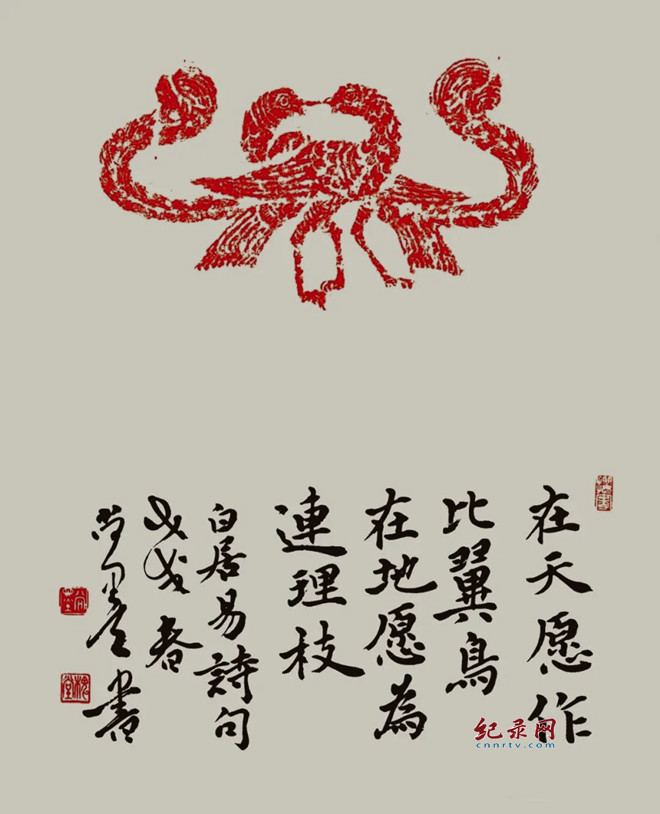 在天愿作
比翼鳥
在地愿為
連理枝
白居易詩句
戊戌春
書
纪录网
cnnrtv.com